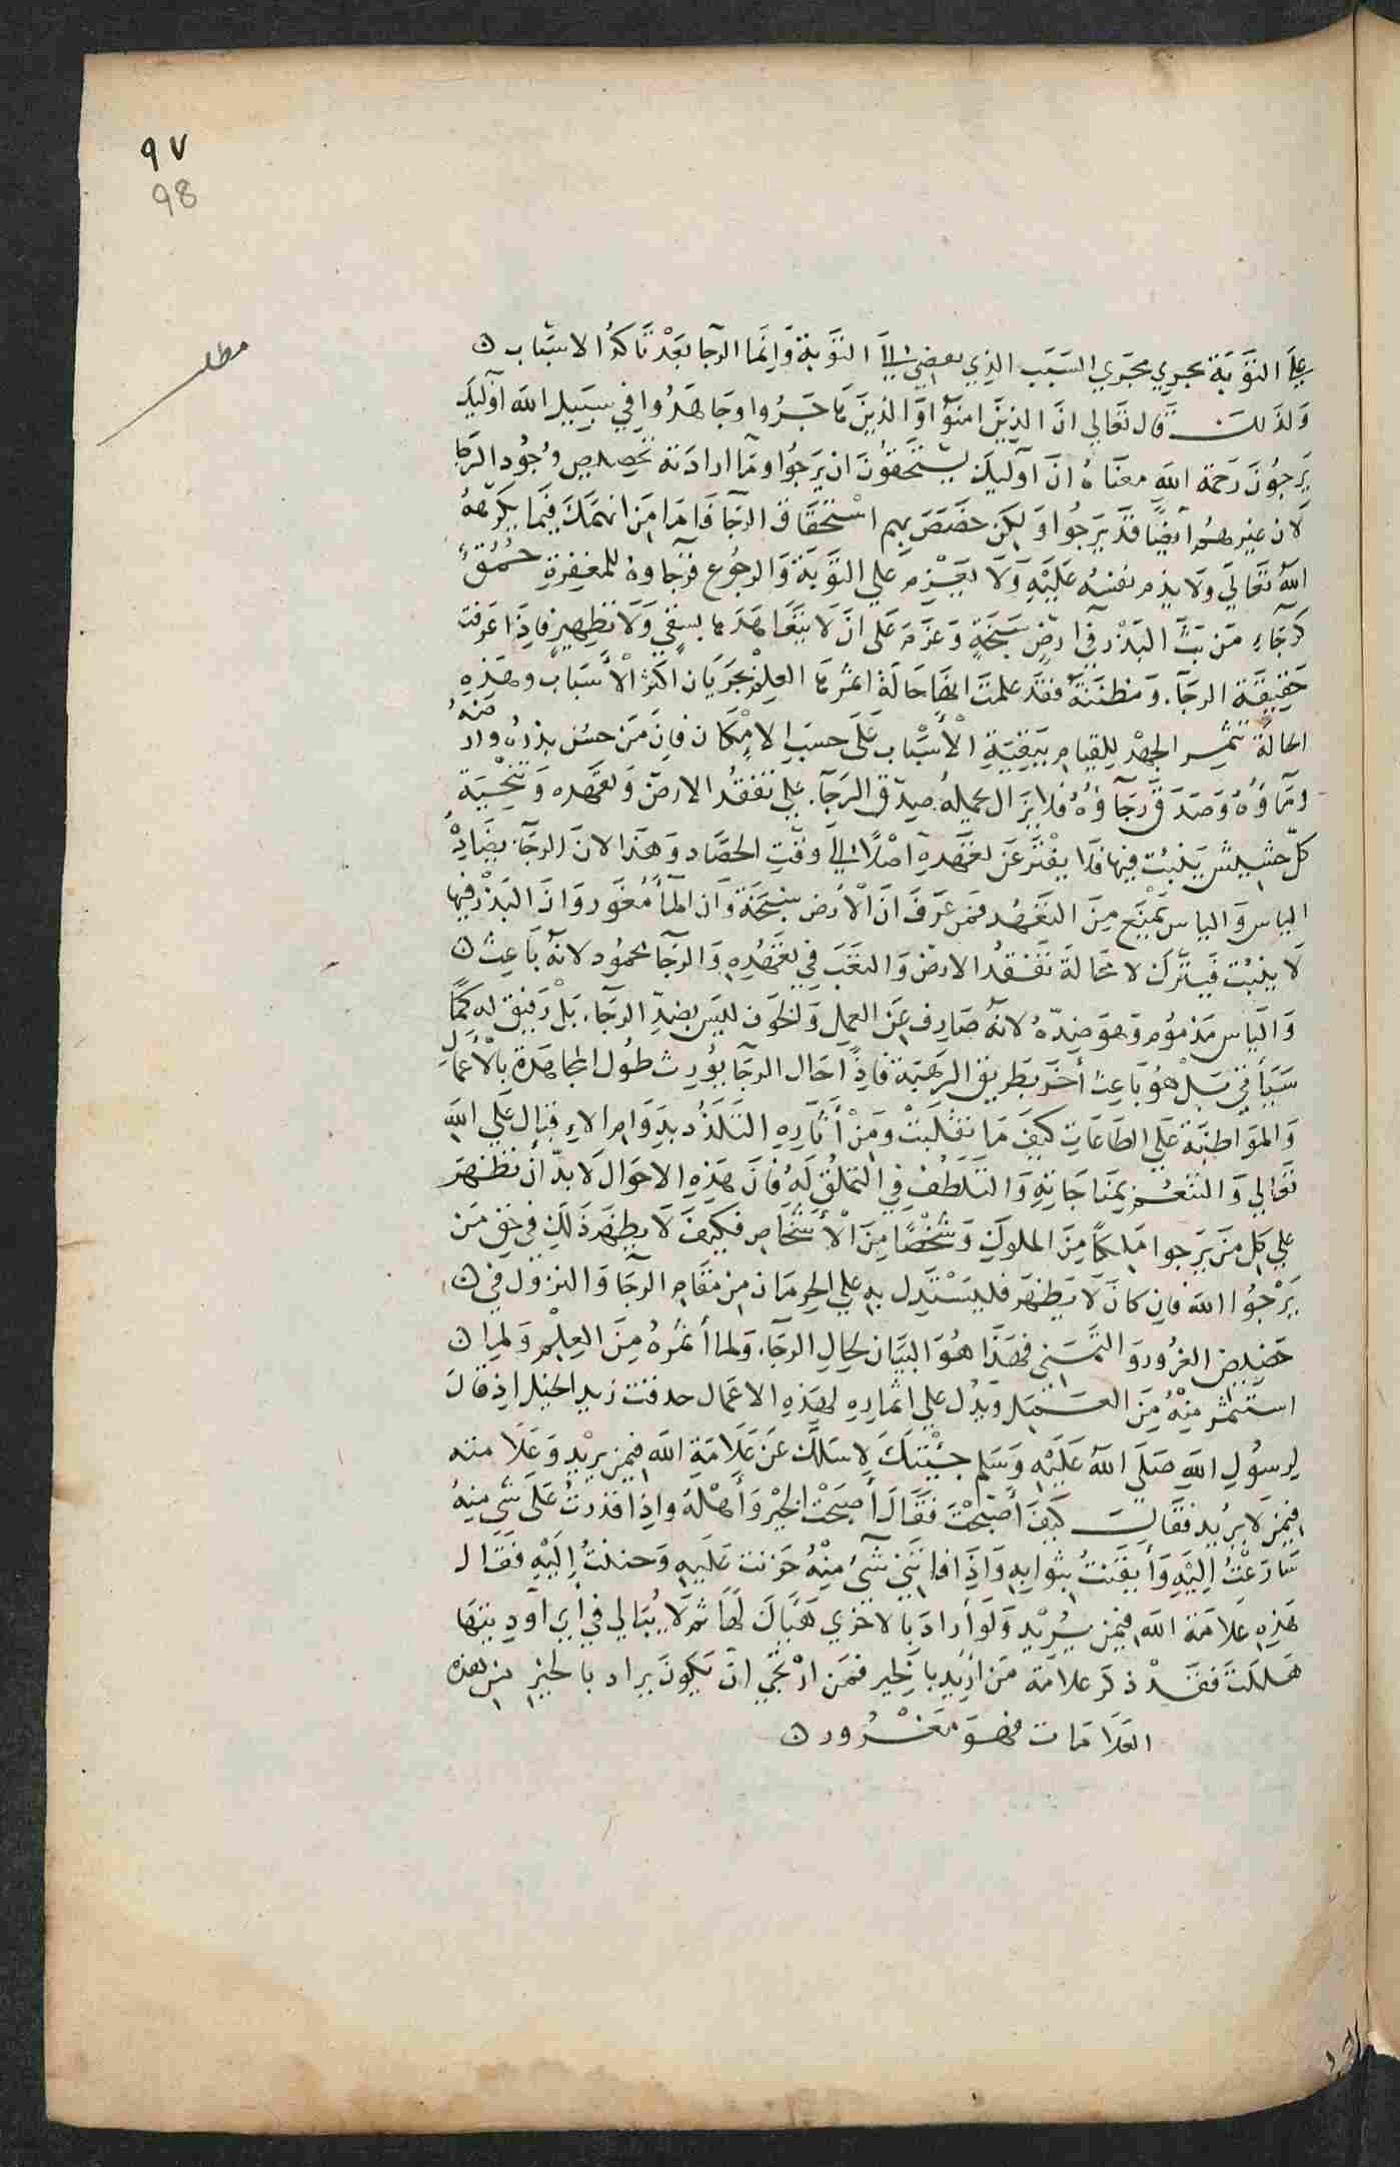 ٩٧
98
مطلـ
علي التَوَبَة يجري مجَري السَبَب الذي يفضي الي التَوَبة وَانَما الرجآ بعَدْ تَاكدُ الاسَبَاب ن
وَلذَلكَ قَال تعَالي انَ الذينَ امنَوُا وَالذينَ هَاجَرُوا وجَاهَدُوا في سبَيل الله اوَليكَ
يَرجُونَ رَحمَة الله معنَاهُ انَ اوليكَ يسْتَحقوُنَ ان يَرجُوا ومَا ارادَ به تخصيصِ وجُود الرَجا
لان غيرهمُ ايضًا قدَ يَرجُوا وَلكن خصَصَ بهم اسْتحقَاق الرجآ فَامَا من انهَمَكَ فيَما يكرَههُ
اللهُ تعَاليَ ولا يذم نفسُه عَليَهِ وَلا يعَزم عَلي التوَبَة وَالرجوُع فرَجَاوهُ للمغفِرة حُمُقٌ
كرَجَاءِ مَن بَثَ البَذْر في ارضٍ سَبخَةٍ وَعزَمَ عَلى انَ لا يتعَاهَدهَا بسَقيٍ وَلا تطهيرٍ فاذَا عَرفت
حَقيقَة الرجَآ. وَمظنتَهُ فقَد علمتَ انهَا حَالَة اثمرَهَا العِلمُ بجَريَان اكثر الأسَبَاب وهَذِهِ
الحالةُ تثمِر الجهْد للِقيام ببَقيَةِ الأسْبَاب عَلَى حسَبِ الامْكَان فانِ مَن حسُن بذرهُ
ومَآوُهُ وَصَدَقَ رَجَآؤُهُ فَلا يزَال يحملهُ صِدق الرَجَآ. علي تفقُد الارضِ وَتعَهده وَتنْحِيَة
كلّ حشيش يَنبُت فيهَا فَلا يفْتَر عَن تعَهّدهِ اصْلاً الي وَقتِ الحصَاد وَهَذَا لانَ الرجَآ يضَادُّ
الياس وَالياس يمْنَع مِنَ التعَهُد فمَن عرَفَ انَ الأرَض سبَخَة وَان المآءَ مُغَور وَانَ البَذْر فيها
لا ينبُت فَيتَرك لا محَالَة تَفقدُ الارضَ وَالتعَب في تعَهُدِهِ وَالرجَآ محمُود لانَهُ بَاعِث ن
وَالَياس مَذمُوم وَهو ضِدّهُ لانَه صَارِف عِن العمَلِ وَالخوف لَيسَ بضِدِّ الرجَآ. بَلْ رَفيق له كمَا
سَيَأتي بَلْ هوُ بَاعِث أخَر بطَريق الرهَبَة فاذاً حَال الرجَآ يوُرِث طُول المجَاهَدة بالأعمال
وَالموَاطبَة عَلي الطَاعَاتِ كيفَ مَا تقَلبَتْ ومِنْ أثَارهِ التَلذُد بدِوَام الاقبَال عَلي الله
تعَالي وَالتنَعُم بمنَاجَاتِهِ وَالتَلطُف في التملُق لَهُ فانَ هَذِهِ الاحَوالَ لا بدّ أنَ تظَهرَ
علي كل مَن يَرجوا مَلكاً مِنَ الملوكِ وَشَخْصاً مِنَ الأشخَاص فكيفَ لا يظهَر ذَلك في حَق مَن
يَرْجوُا الله فان كانَ لا يَظهَر فليسْتدَل به علي الحِرمَان مِن مقَامِ الرجَآ وَالنزوُل في ن
حَضيض الغرُور وَ التمَنِي فهَذَا هُوَ البيَان لحِالِ الرجَآ. وَلما أثمرهُ مِنَ العِلْم وَلمِا ن
استثمر مِنْهُ مِنَ العمَل ويَدُل علي اثمارهِ لهذِهِ الاعمال حدَيث زيد الخيل اذ قالَ
لِرسُولِ الله صَلَى اللهُ عَليَهِ وَسَلم جئتكَ لاسَلكَ عَن عَلَامَةِ الله فيمَن يريُد وَعَلَامته
فيمَن لا يرُيد فقَالَ كيَف أَصْبَحْتَ فقَالَ أصبَحْت الخيْر وَأهْلهُ واذِا قدَرتُ عَلى شَي منِهُ
سَارَعْتُ اليَهِ وَأيقَنتُ بثوابِهِ وَاذَا فاتَنِي شَئُ مِنْهُ حَزنت عَليَهِ وَحننتُ إليَهِ فقَال
هَذِهِ عَلامَة الله فيمَن يُريْد وَلَو أرادَ بَالاخرَي هَيَأك لهَا ثم لا يُبَالي في أي اوديتهَا
هَلكتَ فقَدْ ذكرَ علامَة مَن ارُيد بالخير فمَن ارْتجَي انَ يكونَ يراد بالخير من هذه
العَلامَات فهوَ مغَرُور ن